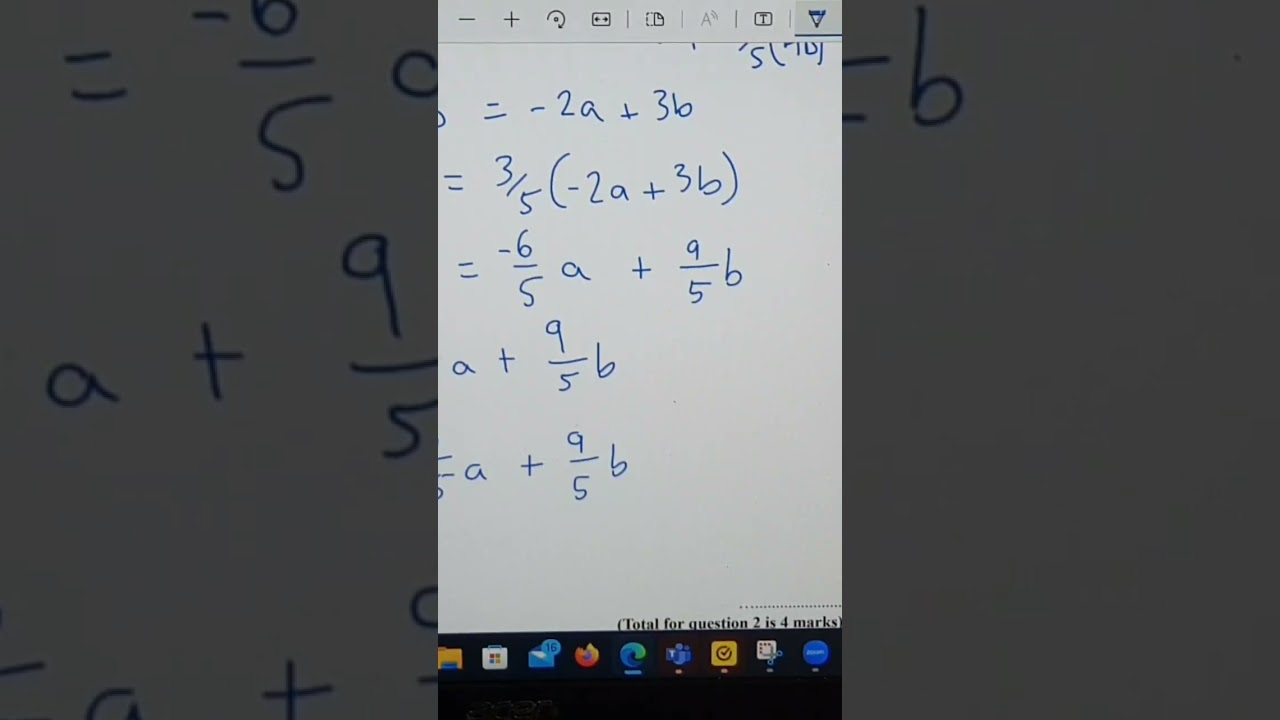 = -2a + 3b
= 3/5 (-2a + 3b)
= -6/5 a + 9/5 b
a + 9/5 b
a + 9/5 b
(Total for question 2 is 4 marks)
16
zoom